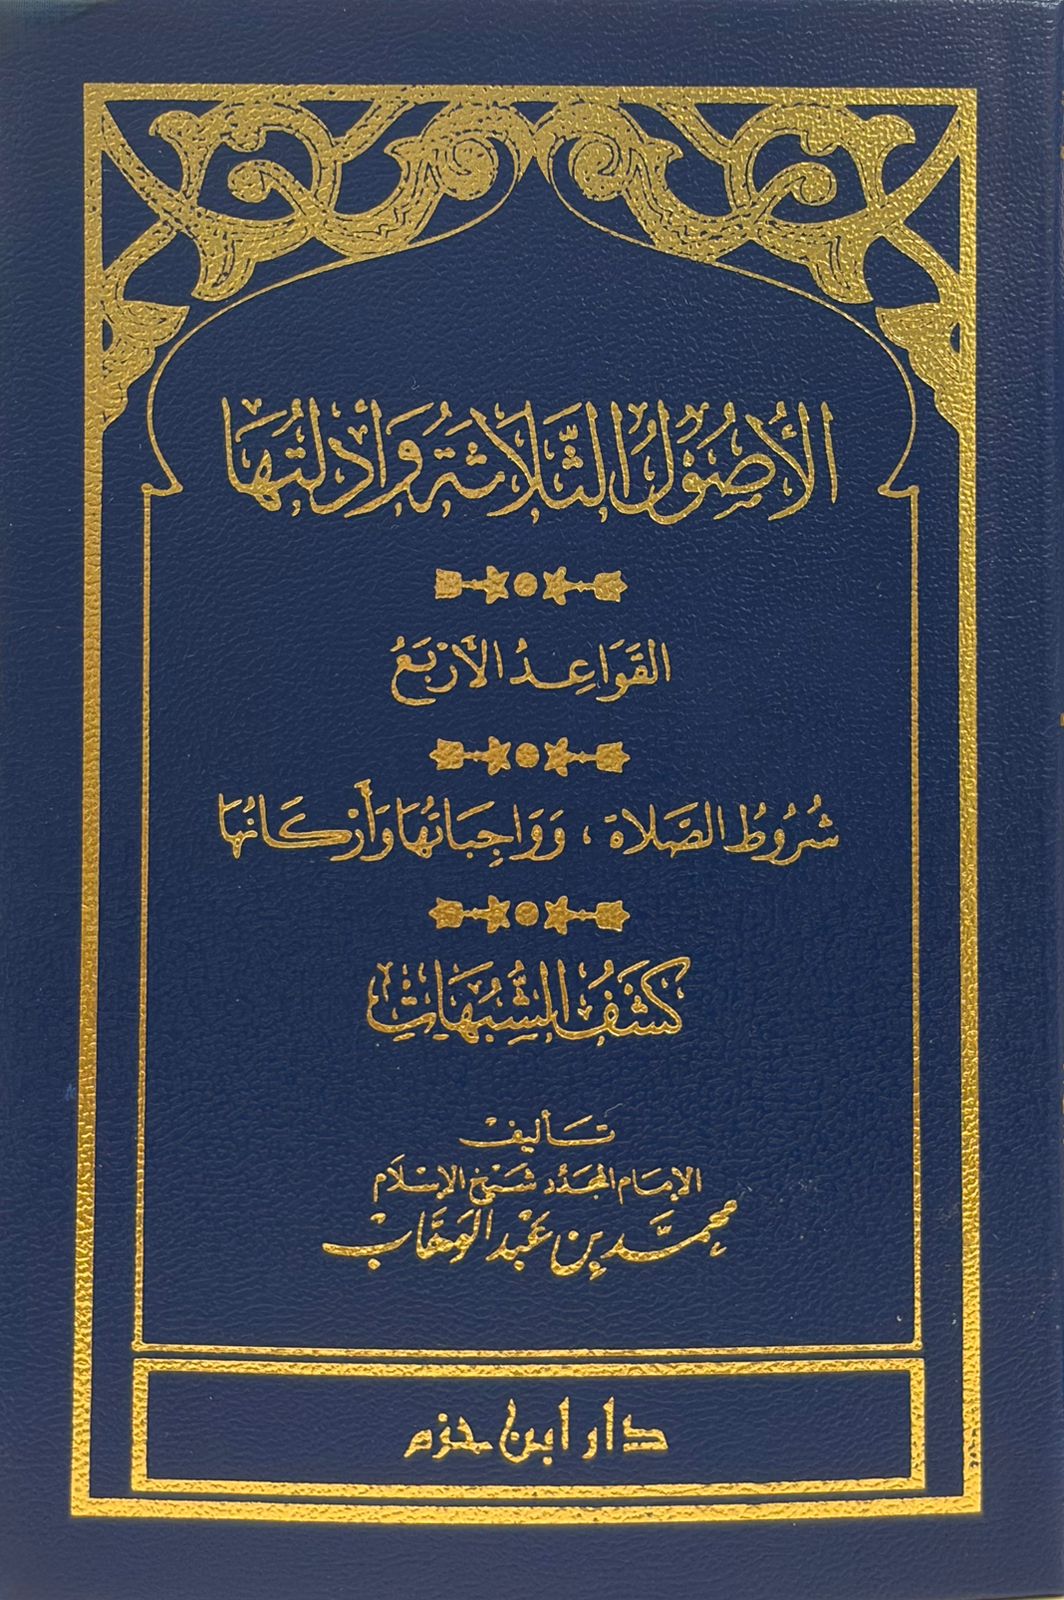 الأُصُولُ الثَّلَاثَةُ وَأَدِلَّتُهَا
القَوَاعِدُ الأَرْبَعُ
شُرُوطُ الصَّلَاةِ ، وَوَاجِبَاتُهَا وَأَرْكَانُهَا
كَشْفُ الشُّبُهَاتِ
تَأليفُ
الإِمَامِ المُجَدِّدِ شَيْخِ الإِسْلَامِ
مُحَمَّد بْنِ عَبْد الوَهَّاب
دار ابن حزم